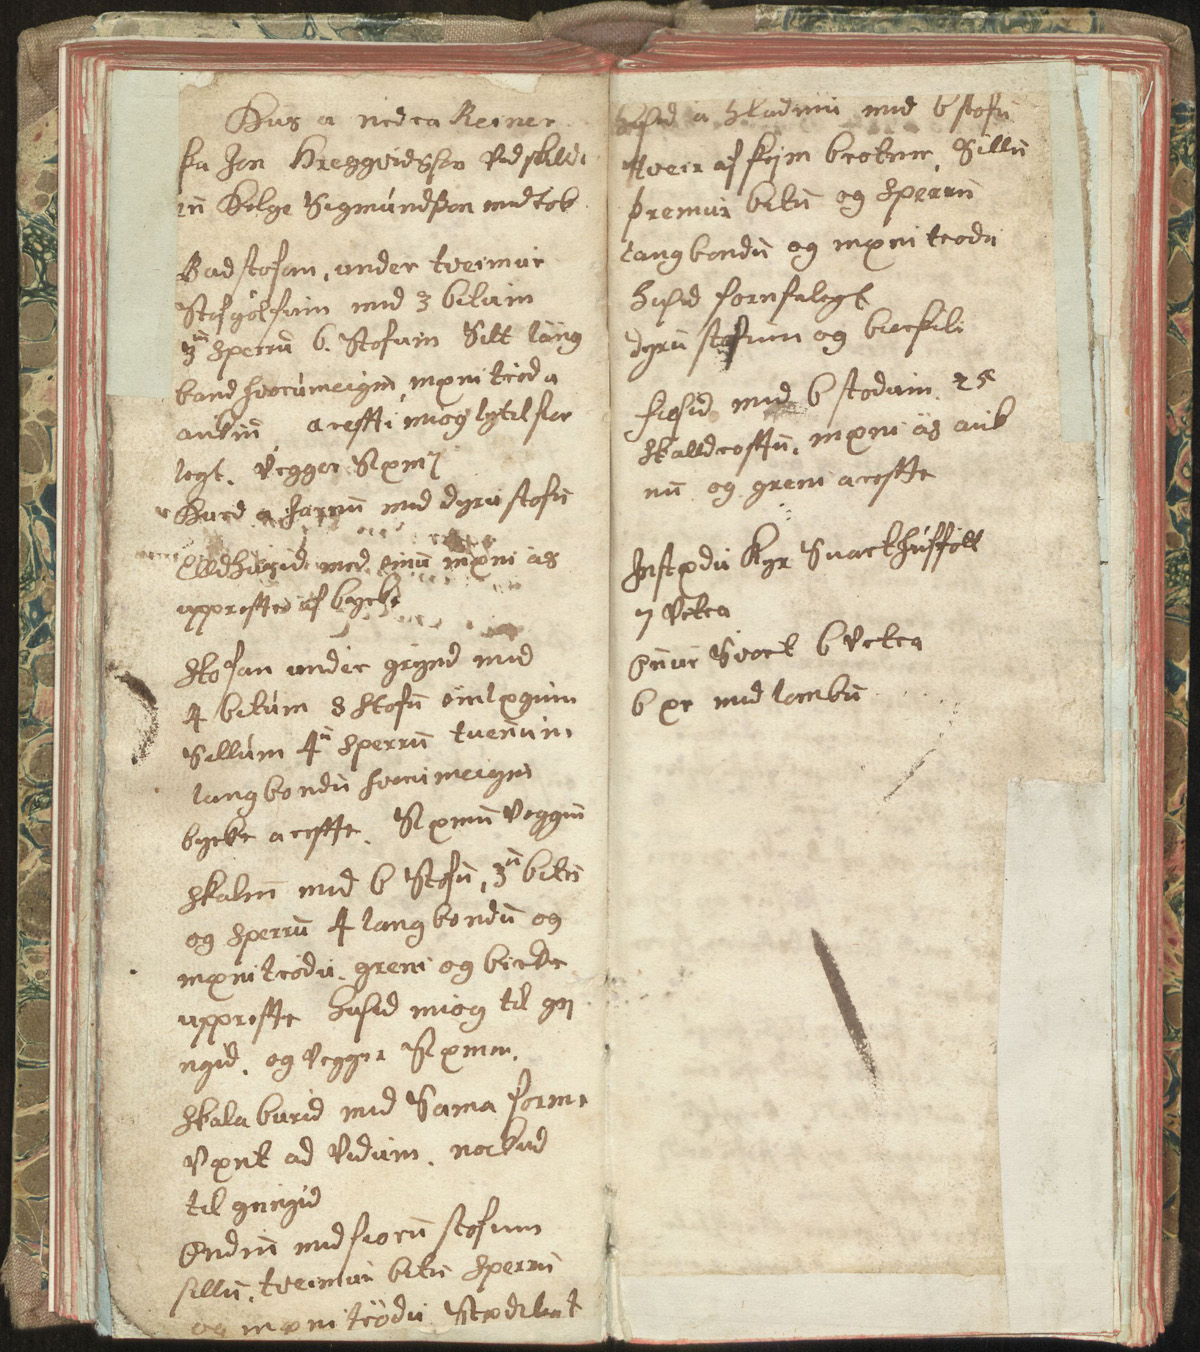 Hus a nedra Reiner
ka Jon Hreggvidsson Vid skildi
en Helge Sigmundsson medtok
Badstofan, under tveimur
Stafgolfum med 3 bitum
3ū sperrū 6. Stofum Sillt lāng
band hvorumeigin mæni troda
aukin areffti miog lytelfior
legt. Vegger Slæmer
Hurd a Jarnū med dyru stofū
Elldhusid med einū mæni ās
upprefted af byrke
Stofan under grynd med
4 bitum 8 stofū einlægum
Sillum 4ū sperrū tvenum
langbondū hvorumeigin
byrke areffte. Slæmū Veggiū
Skalin med 6 Stofū, 3ū bitū
og sperrū 4 langbondū og
mænitrodu. greni og birke
uppreffte husid miog til gei
ngid. og Vegger Slæmer.
Skala burid med Sama forme
Vænt ad Vidum. nockud
til geingid
Ondiū med fiorū stofum
sillū, tveimur bitū sperrū
og mænitrödu Stædelegt
husid a hladinu med 6 stofū
tveir af þeim brotner, Sillū
þremur bitū og sperrū
langbondū og mænitrodu
husid fornfalegt
dyru stofum og burskili
fiosid med 6 stodum. 25
skalldroftū, mæni ās auk
nū og greni areffte
Jnstædu Kyr Svarthuffott
7 Vetra
Svort 6 Vetra
6 ær med lombū